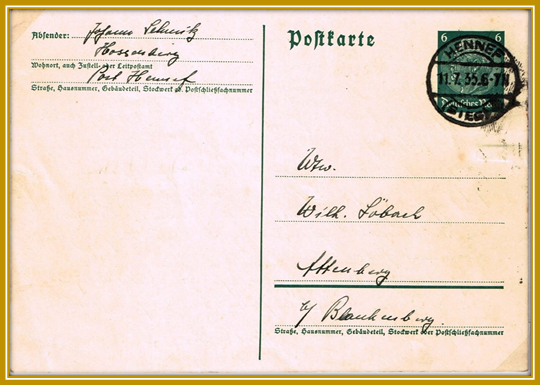 Absender: Johann Schmitz
Hossenberg
Wohnort, auch Zustell- oder Leitpostamt
Post Hennef
Straße, Hausnummer, Gebäudeteil, Stockwerk od. Postschließfachnummer
Postkarte
6 6
HENNEF
11.7.35.6-7N
(SIEG)
Deutsches
Wtw.
Wilh. Löbach
Attenberg
b/ Blankenberg.
Straße, Hausnummer, Gebäudeteil, Stockwerk oder Postschließfachnummer